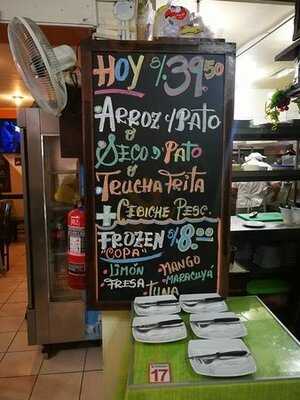 HOY S/. 39.50
ARROZ C/PATO
Ó
SECO D PATO
Ó
TRUCHA FRITA
+ CEBICHE PESC.
FROZEN S/ 8.00
"COPA"
LIMÓN MANGO
FRESA MARACUYÁ
TUNA
17